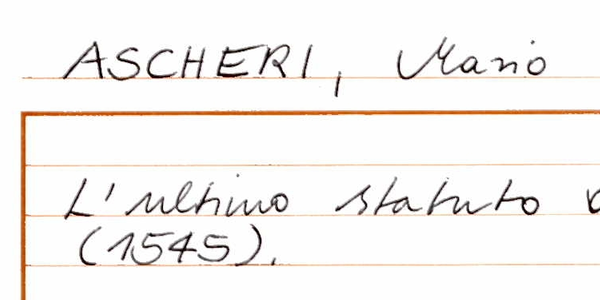 ASCHERI, Mario
L'ultimo statuto
(1545).